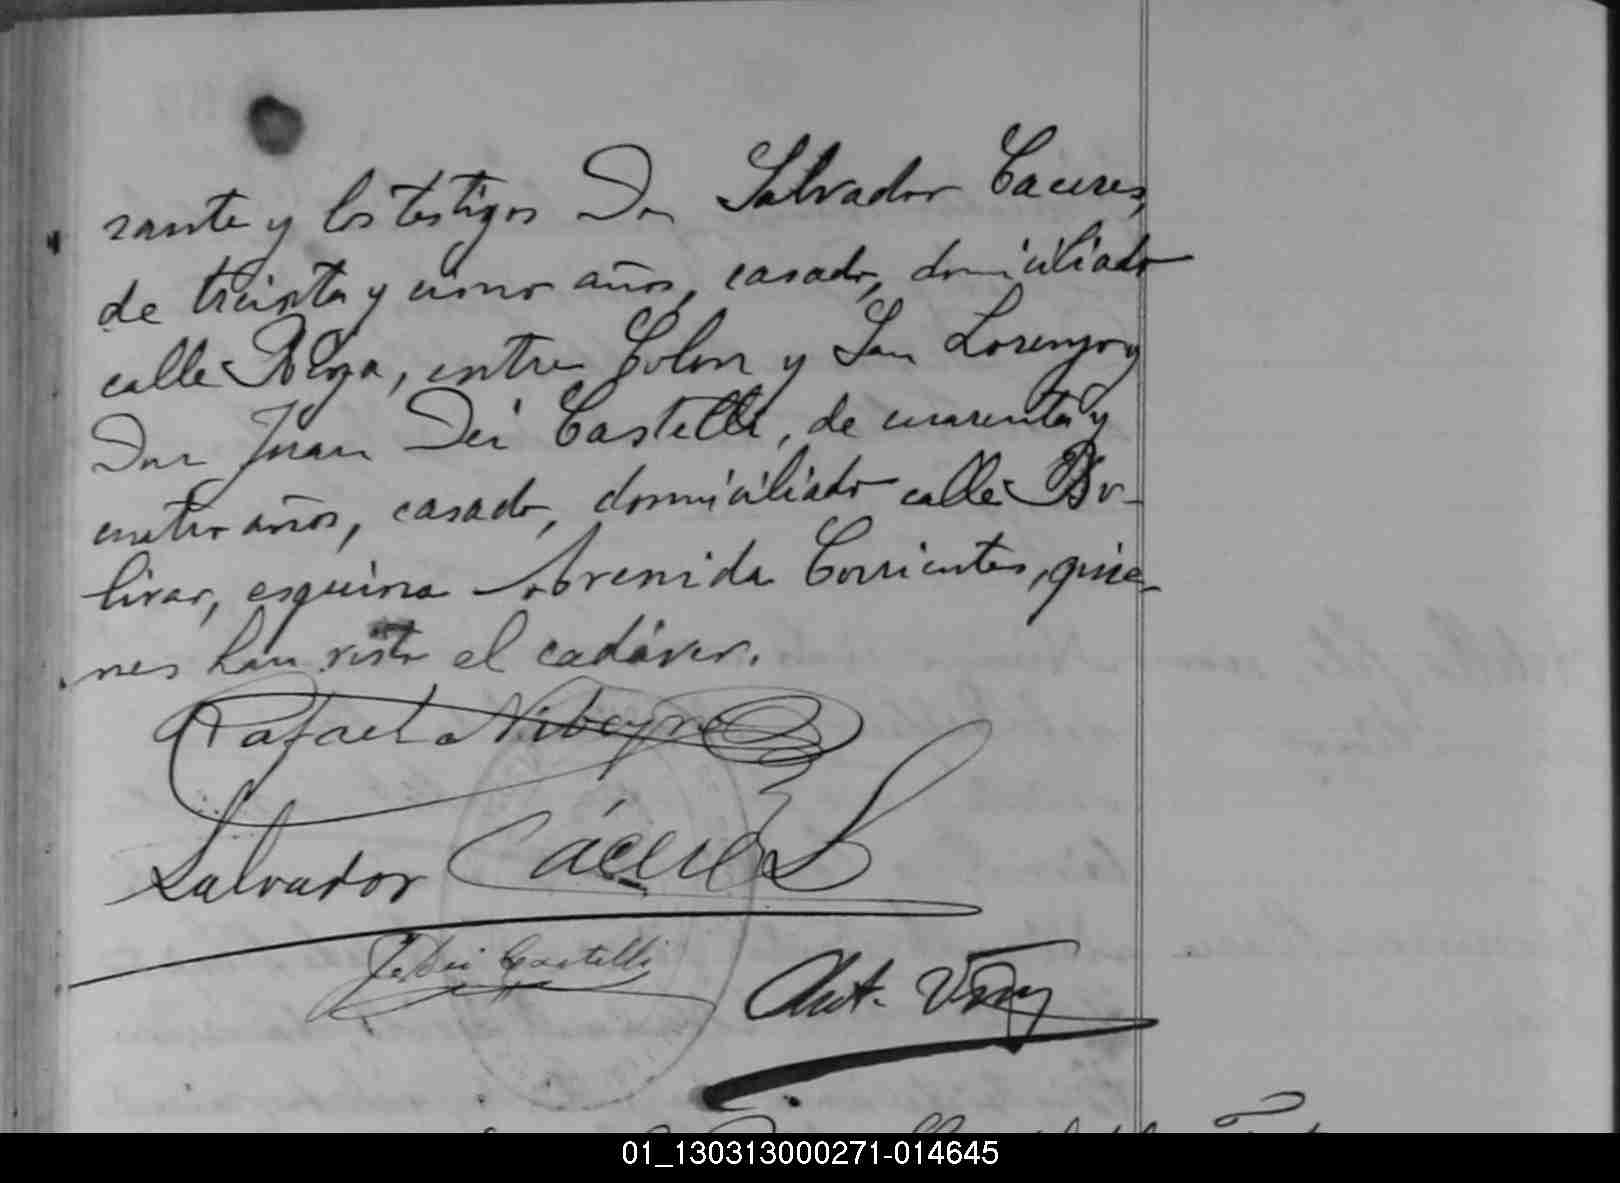 rante y los testigos Don Salvador Caceres,
de treinta y cinco años, casado, domiciliado
calle Rioja, entre Colon y San Lorenzo y
Don Juan Dei Castelli, de cuarenta y
cuatro años, casado, domiciliado calle Bo-
livar, esquina Avenida Corrientes, quie-
nes han visto el cadáver.
Rafael Nibeyro
Salvador Cáceres
J. Dei Castelli
Ant.
01_130313000271-014645